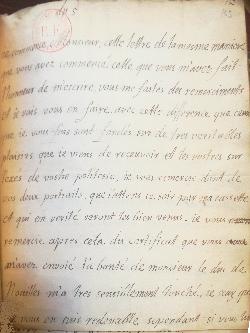 je commence, Monsieur, cette lettre de la mesme maniere
que vous avez commencé celle que vous m'avez fait
l'honneur de m'ecrire, vous me faites des remerciments
et je vais vous en faire, avec cette difference que
que je vous fais sont fondés sur de tres veritables
plaisirs que je viens de recevoir et les vostres sur
de vostre politesse, je vous remercie donc de
vos deux portraits, que j'attens ce soir par ma cassette
et qui en verité seront les bien venus. je vous
remercie, apres cela, du certificat que vous
m'avez envoié la bonté de monsieur le duc de
Noailles m'a tres sensiblement touché, je scay que
je vous en suis redevable, cependant si vous